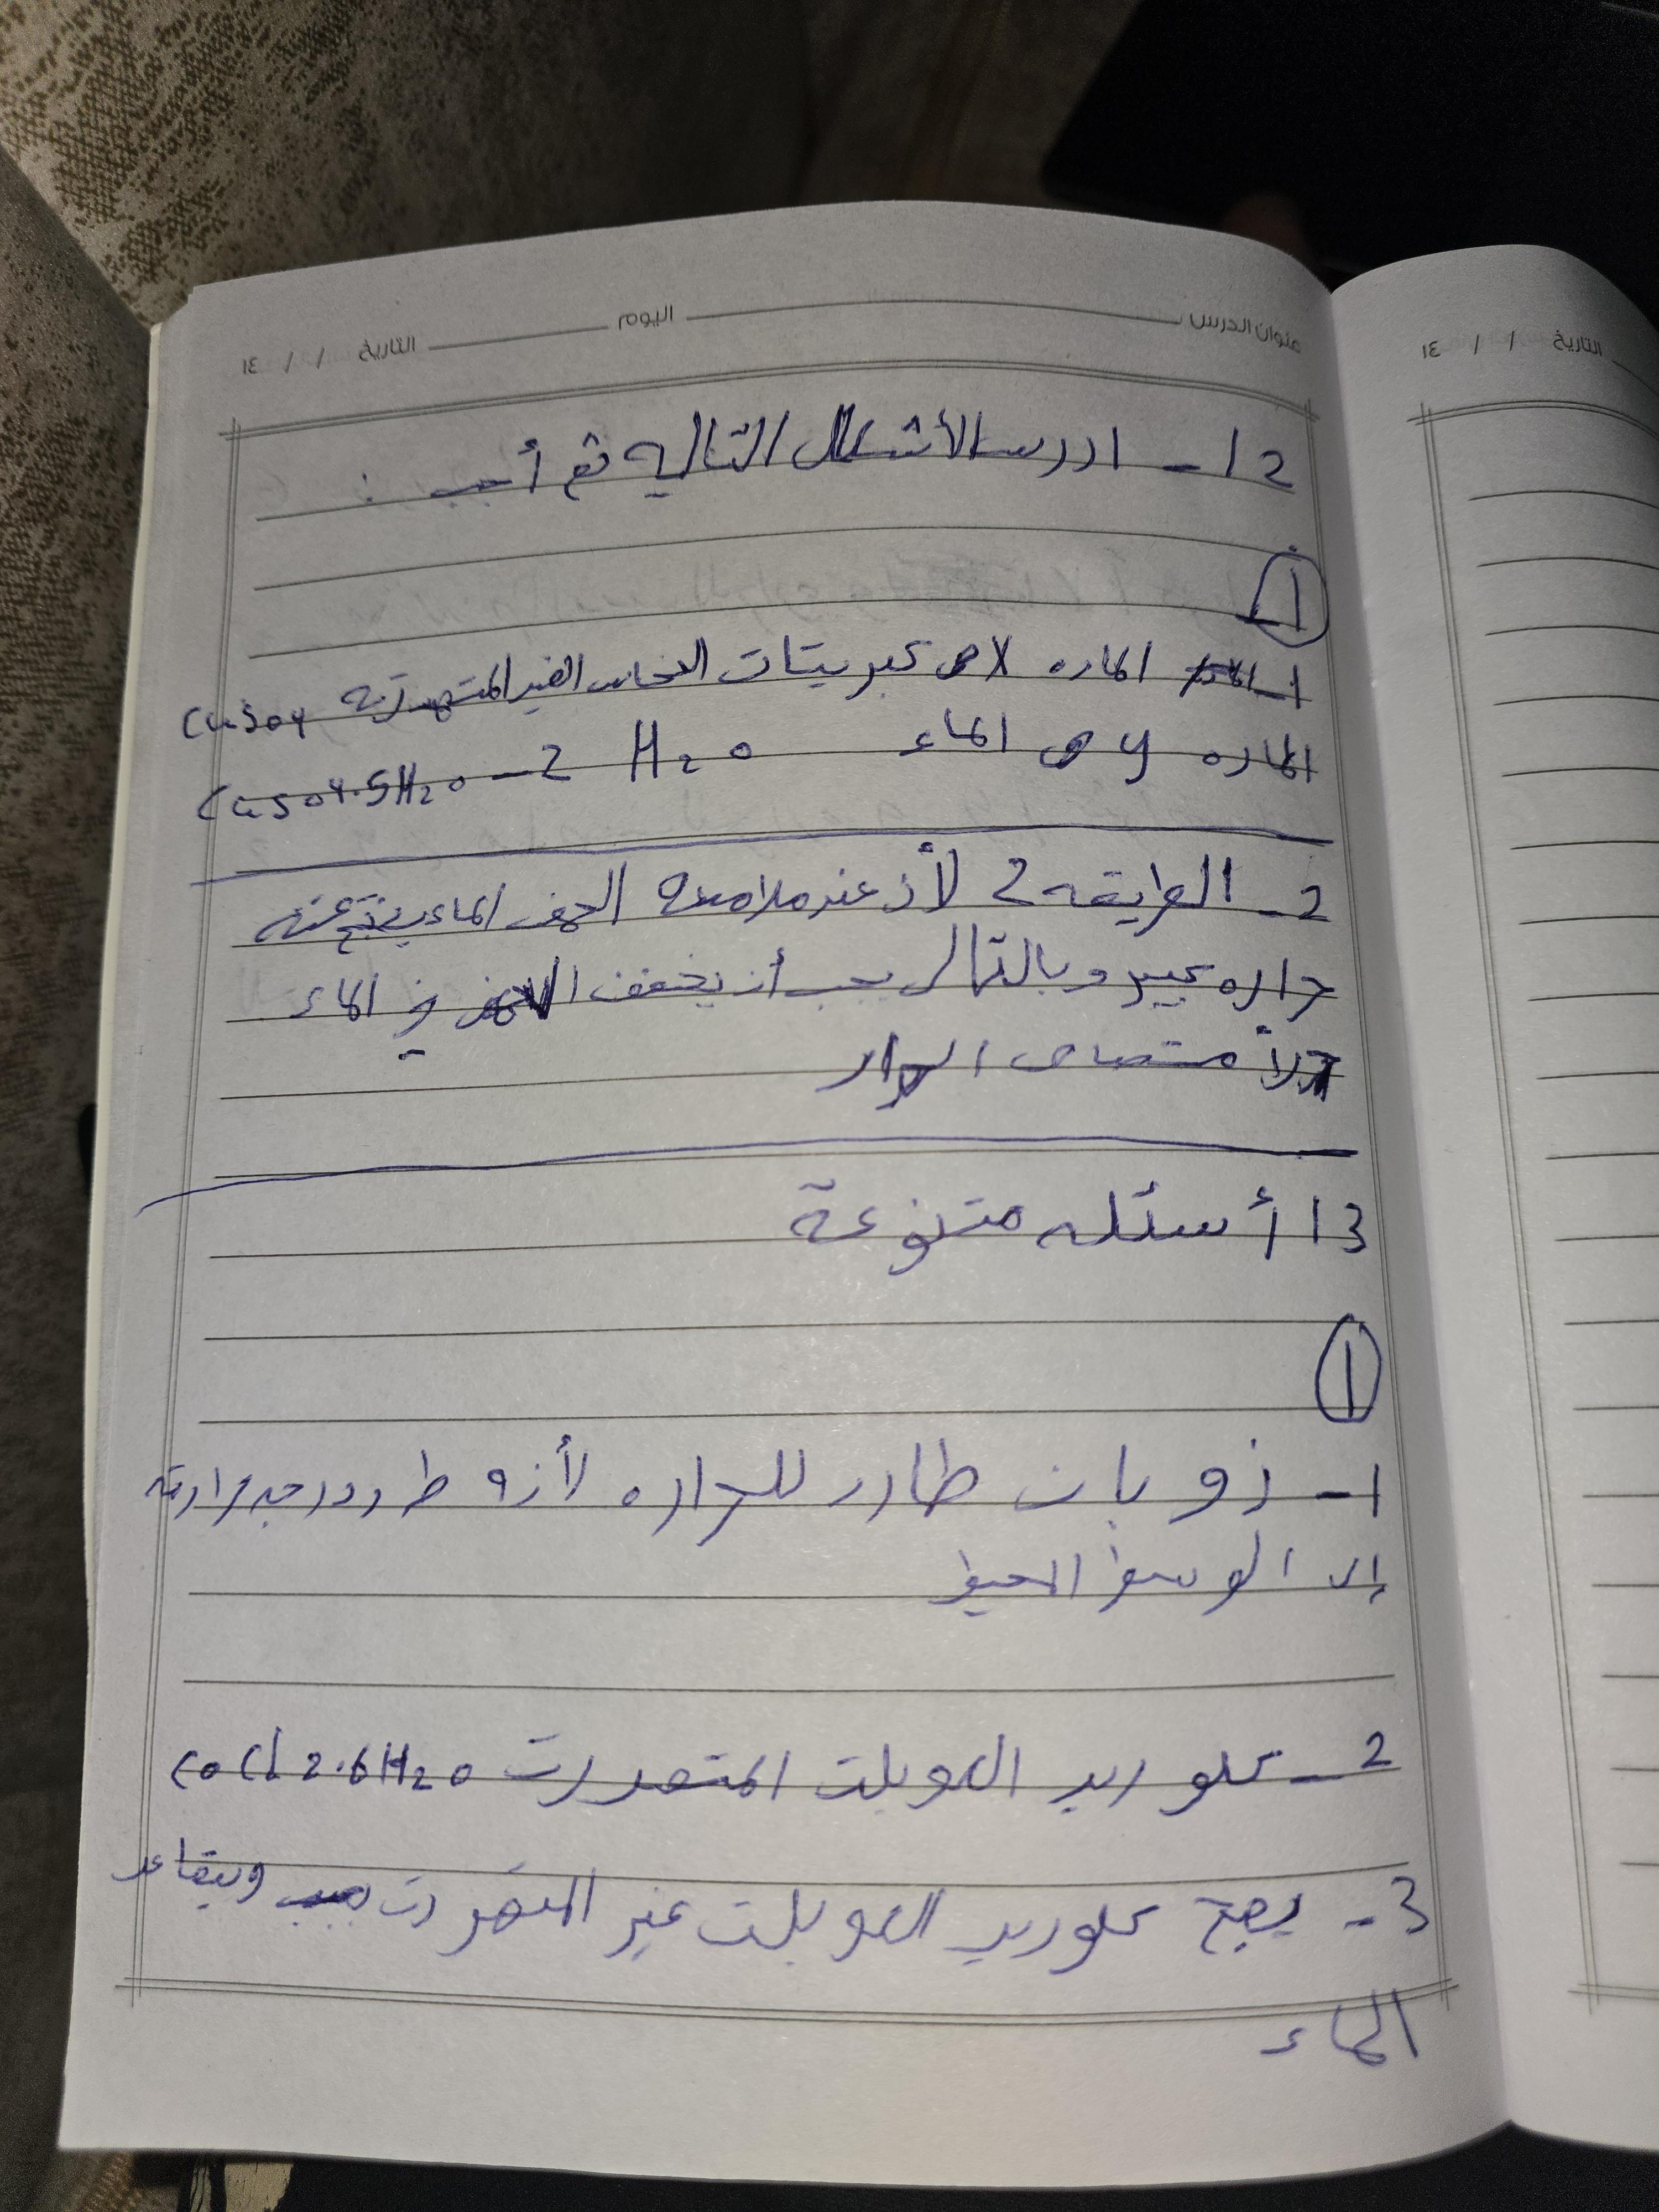 عنوان الدرس اليوم التاريخ / / ١٤
التاريخ / / ١٤
12 - ادرس الأشكال التاليه ثم أجب :
1
1- الماده X هي كبريتات النحاس الغير المتهدرته CuSO4
الماده y هي الماء H2O 2- CuSO4.5H2O
2- الطريقه 2 لأن عند ملامسة الحمض الماء ينتج عنه
حراره كبير وبالتالي يجب أن يخفف الحمض في الماء
لأمتصاص الحرار
13 أسئله متنوعة
1
1- ذوبان طارد للحراره لأنه طرد درجه حرارته
إلى الوسط المحيط
2- كلوريد الكوبلت المتهدرت CoCl2.6H2O
3- يصبح كلوريد الكوبلت غير المتهدرت ويتصاعد
الماء